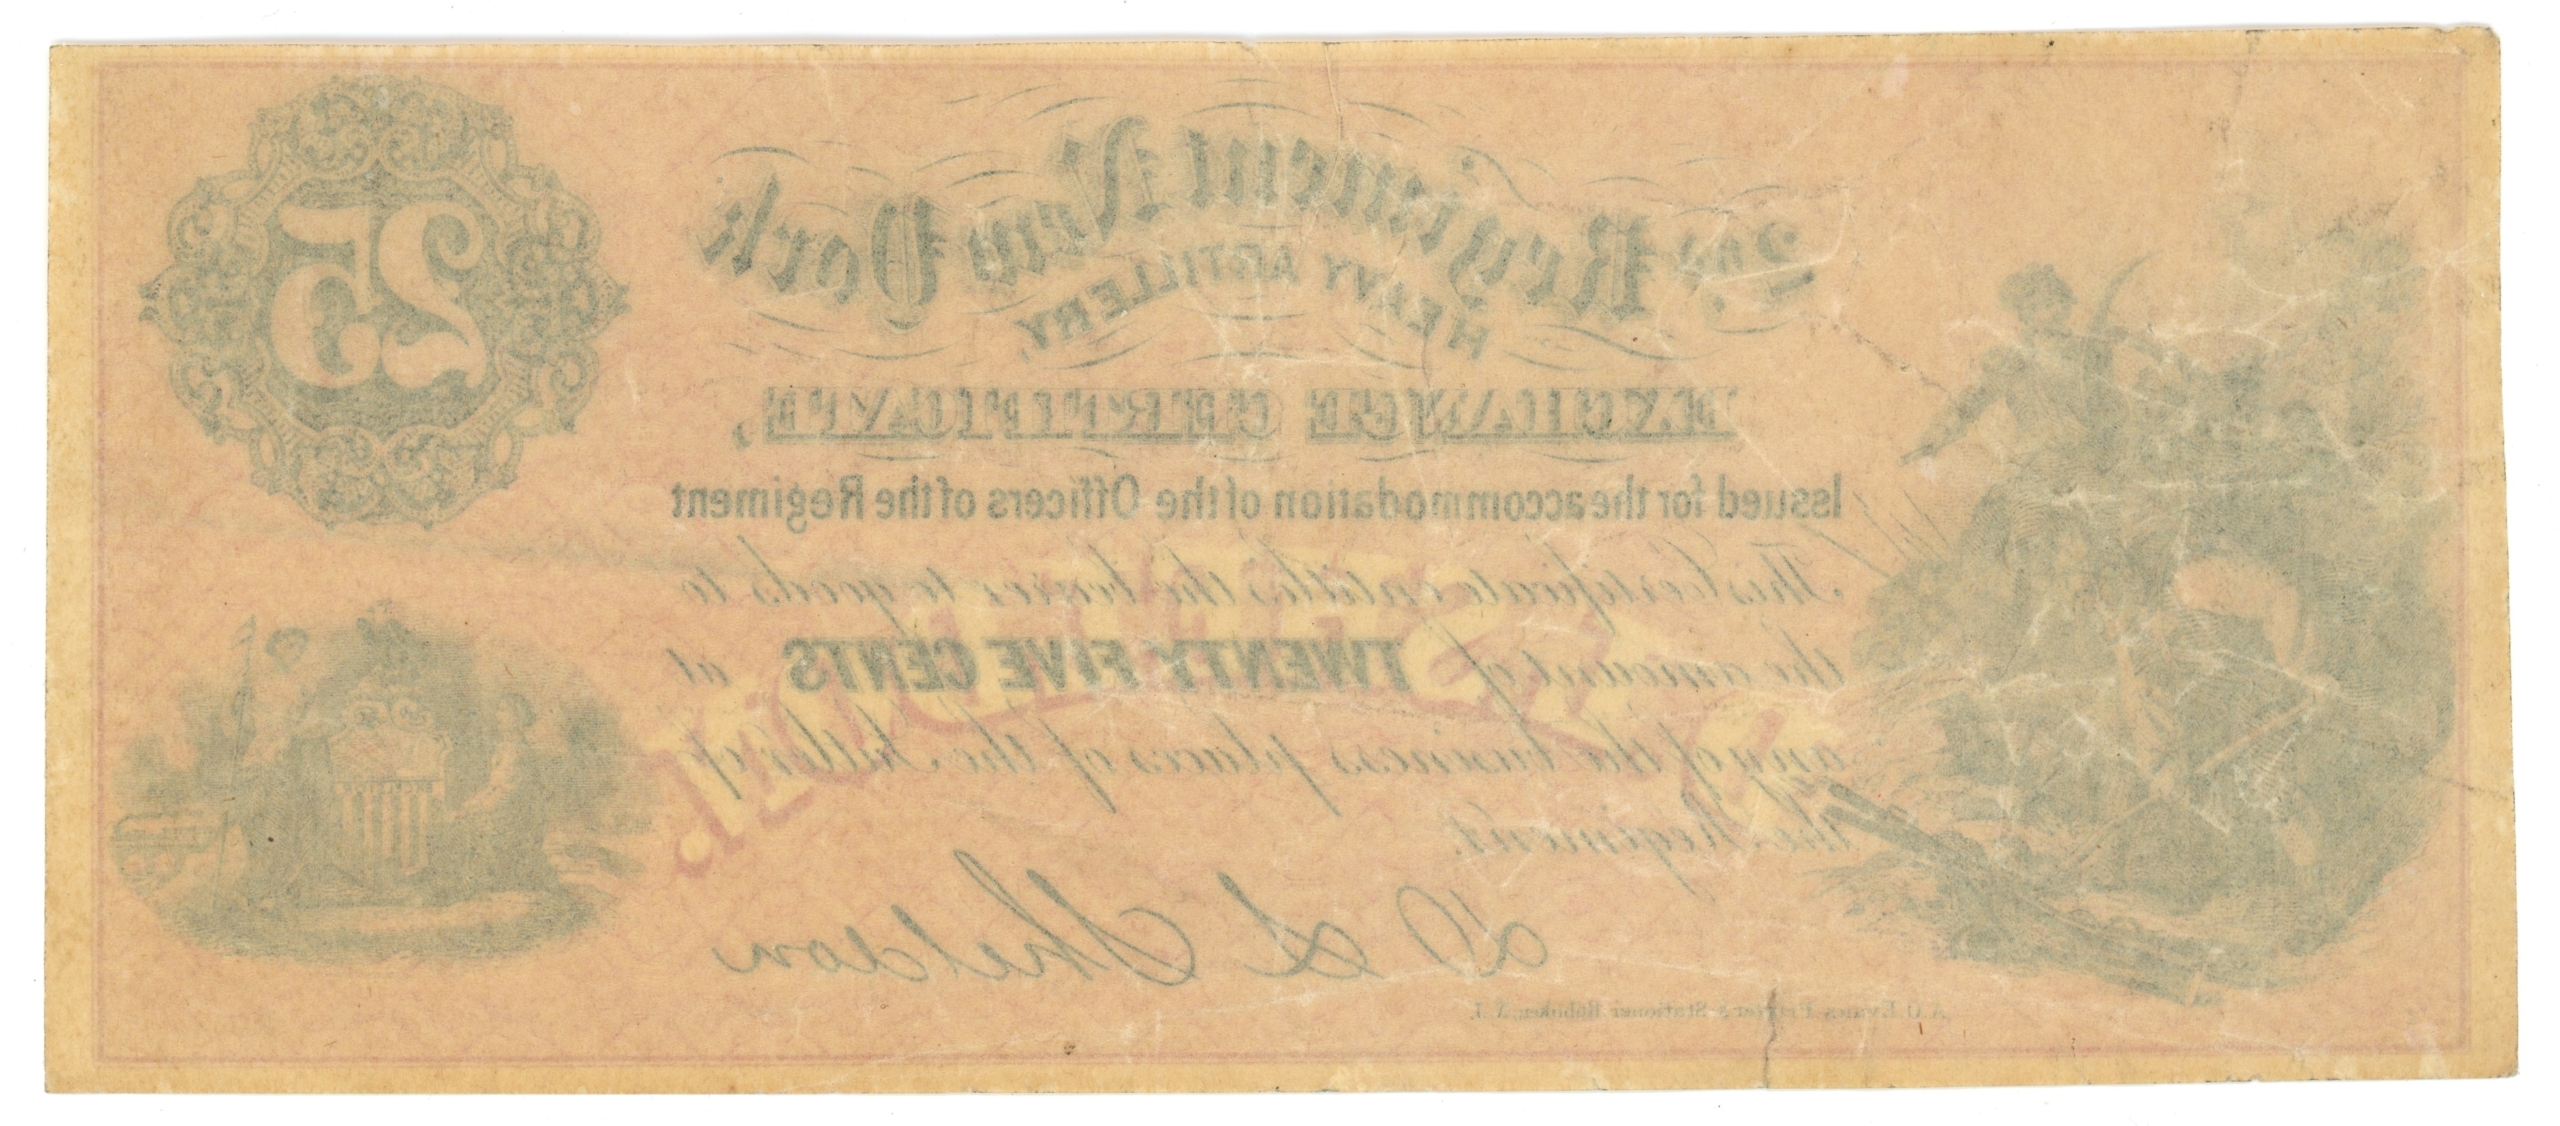 2nd. Regiment New York
HEAVY ARTILLERY,
EXCHANGE CERTIFICATE,
Issued for the accommodation of the Officers of the Regiment
This Certificate entitles the bearer to goods to
the amount of TWENTY FIVE CENTS at
any of the business places of the Sutler of
the Regiment.
25
SUTLER.
D S Sheldon
Printer & Stationer Hoboken, N. J.